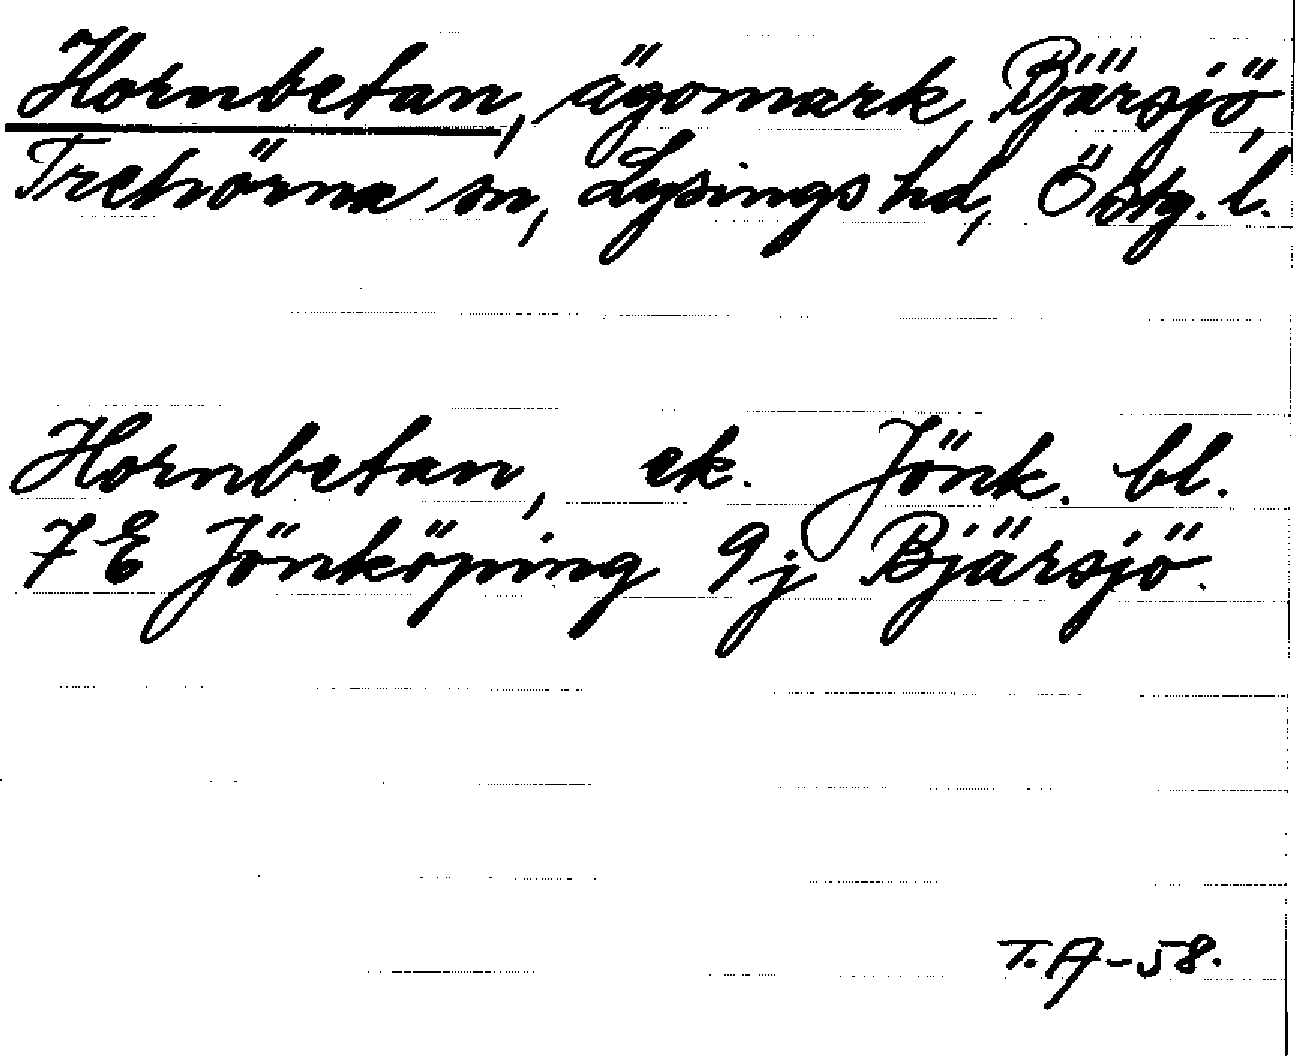 Hornbetan, ägomark, Bjärsjö,
Trehörna sn, Lysings hd, Östg. l.
Hornbetan, ek. Jönk. bl.
7 E Jönköping 9j Bjärsjö.
T. A-58.